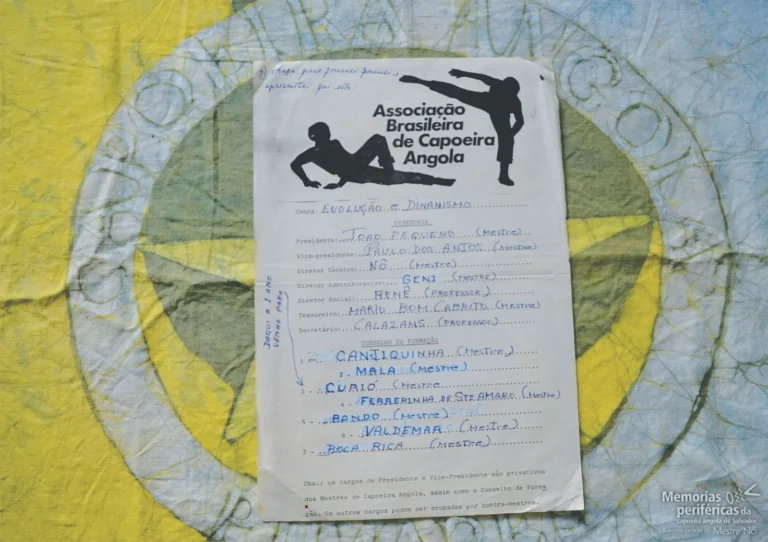 CAPOEIRA ANGOLA
apresentei foi esta:
Associação
Brasileira
de Capoeira
Angola
CHAPA: EVOLUÇÃO E DINAMISMO
DIRETORIA
Presidente: JOÃO PEQUENO (MESTRE)
Vice-presidente: PAULO DOS ANJOS (MESTRE)
Diretor Técnico: NÔ (MESTRE)
Diretor Administrativo: GENI (MESTRE)
Diretor Social: RENÊ (PROFESSOR)
Tesoureiro: MARIO BOM CABRITO (MESTRE)
Secretário: CALAZANS (PROFESSOR)
CONSELHO DE FORMAÇÃO
1 - CANJIQUINHA (MESTRE)
2 - MALA (MESTRE)
3 - CURIÓ (MESTRE
4 - FERREIRINHA DE STº AMARO (MESTRE)
5 - BANDO (MESTRE)
6 - VALDEMAR (MESTRE)
7 - BOCA RICA (MESTRE)
DAQUI A 1 ANO
VENHO PARA
Obs.: os cargos de Presidente e Vice-Presidente são privativos
dos Mestres de Capoeira Angola, assim como o Conselho de Forma
ção. Os outros cargos podem ser ocupados por contra-mestres.
Memórias
periféricas da
capoeira angola de Salvador
Mestre Nô